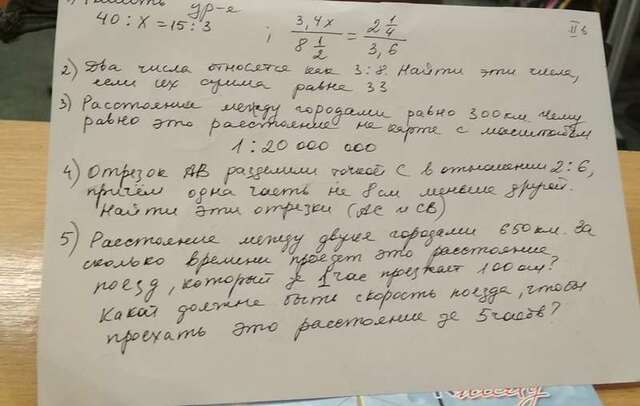 ур-е
40 : x = 15 : 3 ; 3,4x / 8 1/2 = 2 1/4 / 3,6
II в
2) Два числа относятся как 3 : 8. Найти эти числа,
если их сумма равна 33
3) Расстояние между городами равно 300 км. Чему
равно это расстояние на карте с масштабом
1 : 20 000 000
4) Отрезок AB разделили точкой C в отношении 2 : 6,
причём одна часть на 8 см меньше другой.
Найти эти отрезки (AC и CB)
5) Расстояние между двумя городами 650 км. За
сколько времени проедет это расстояние
поезд, который за 1 час проезжает 100 км?
Какой должна быть скорость поезда, чтобы
проехать это расстояние за 5 часов?